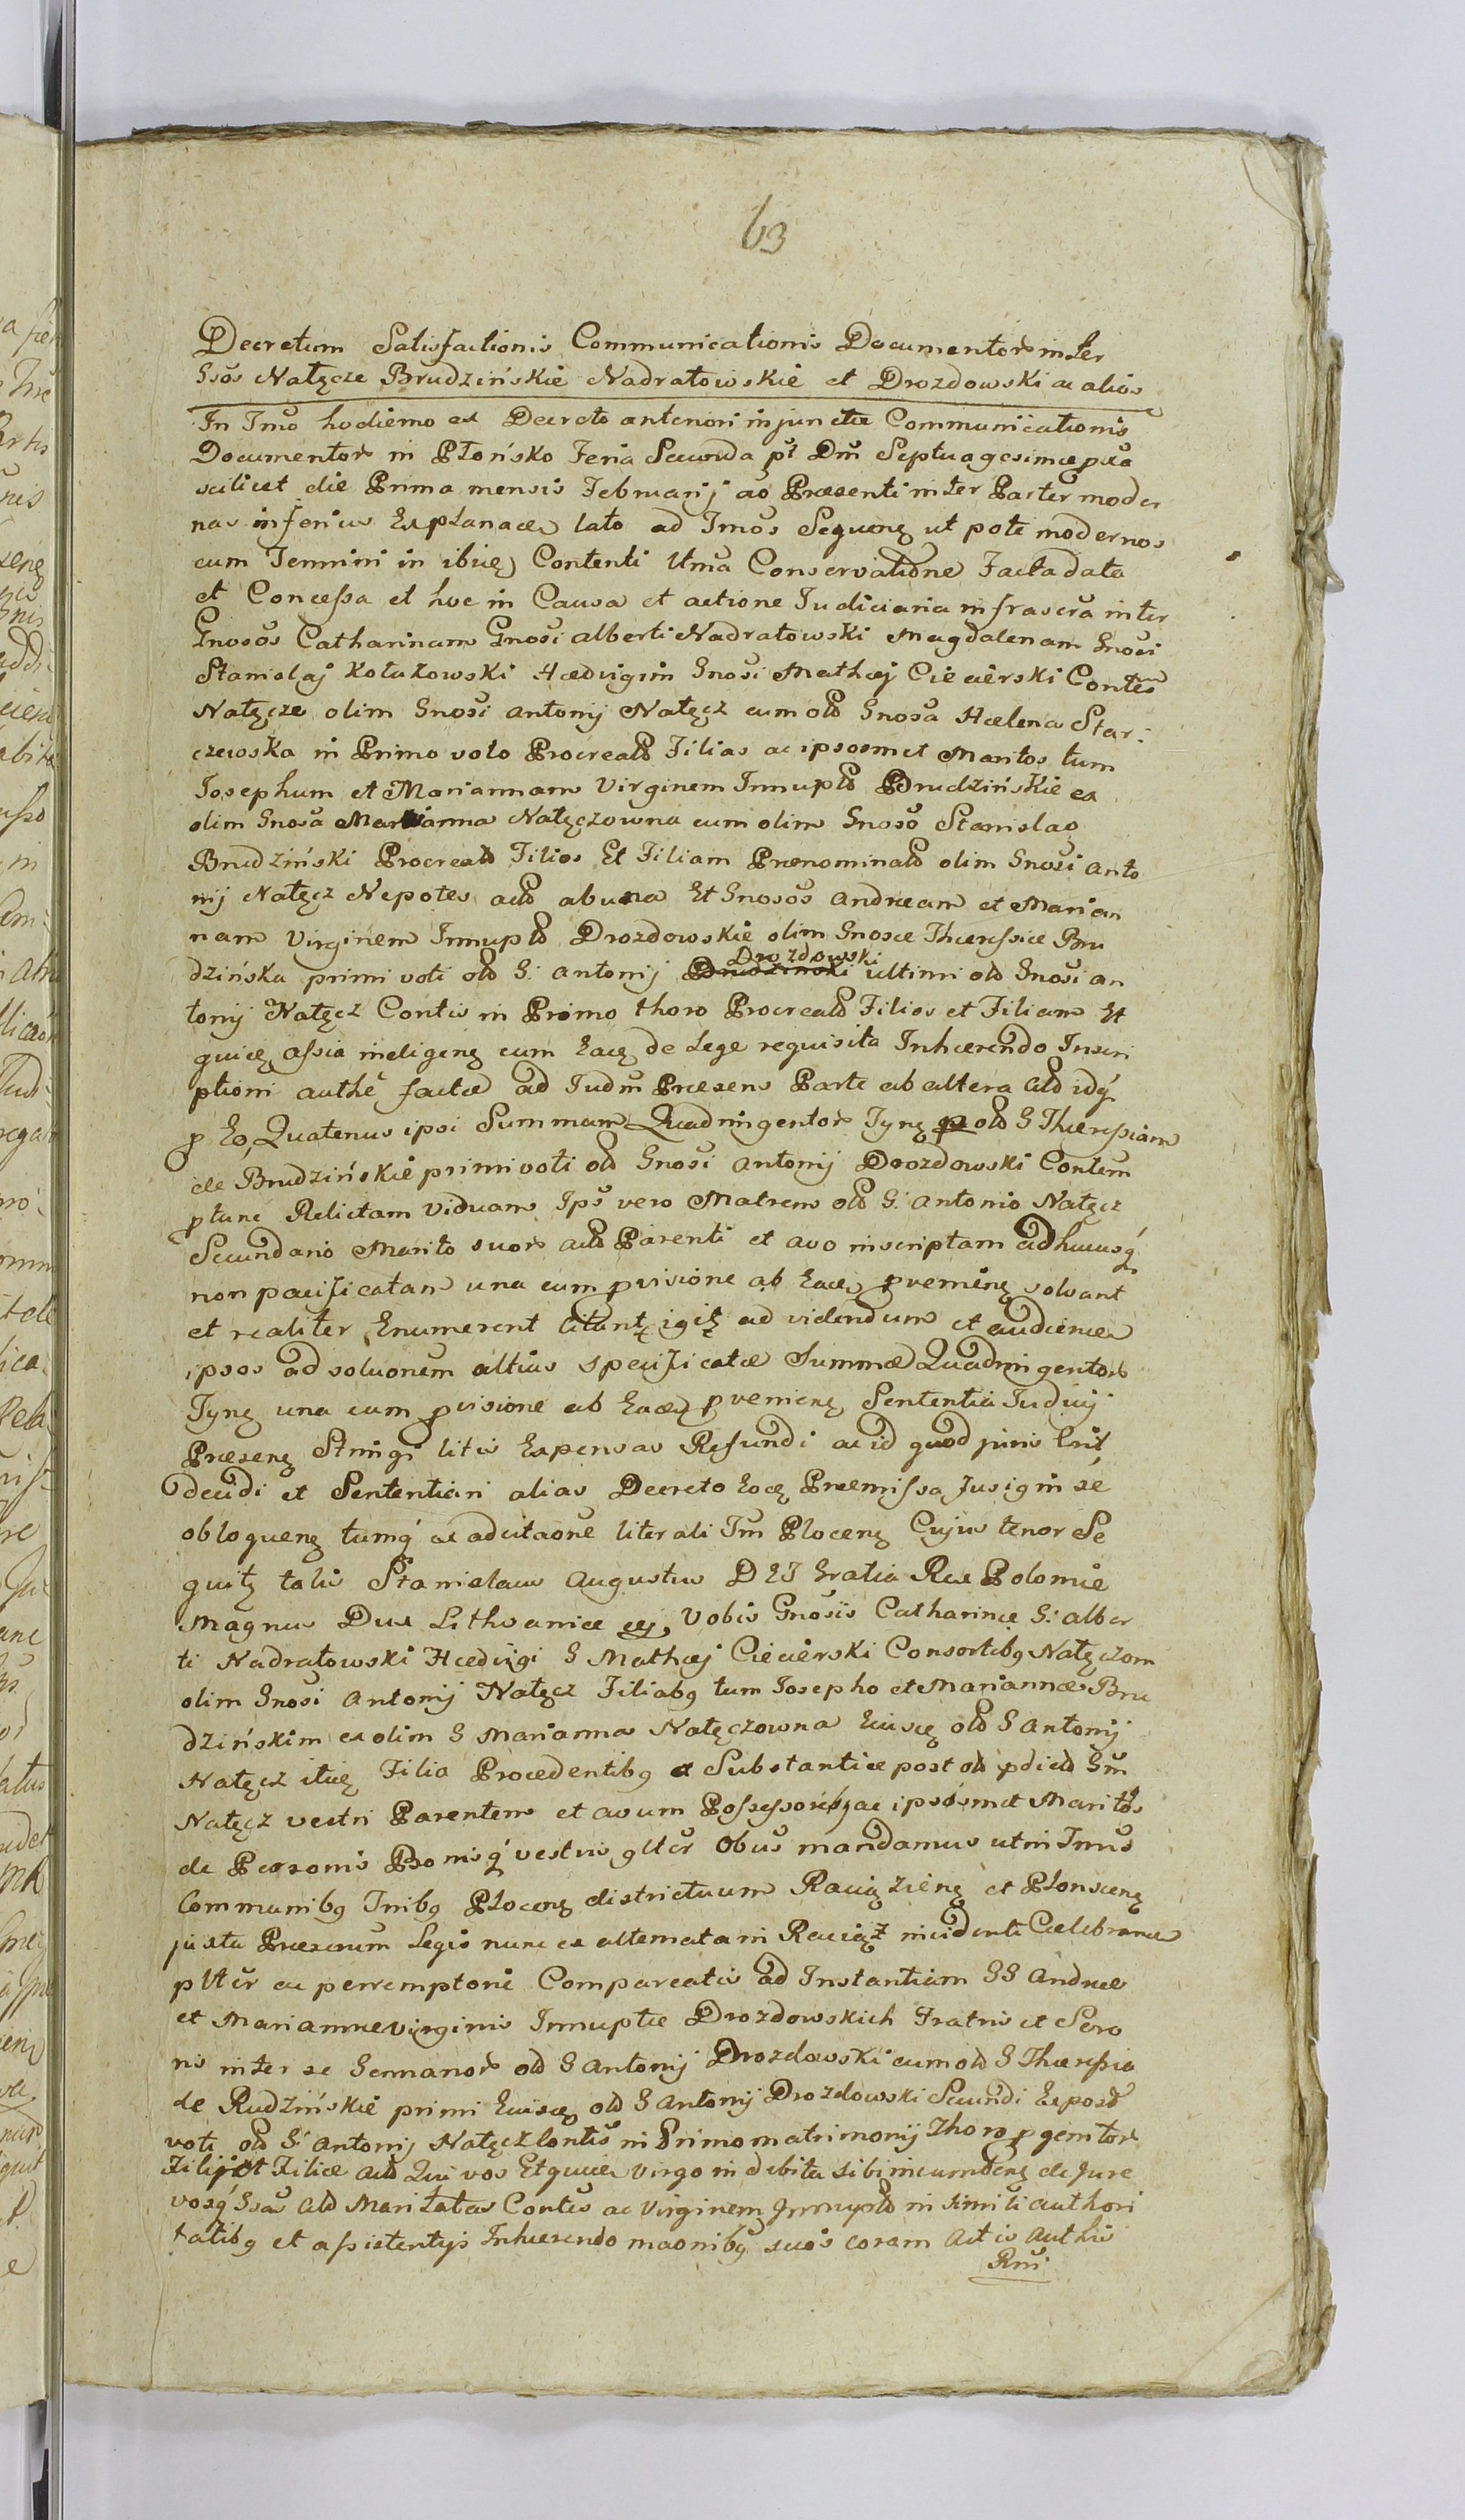 63
Decretum Satisfactionis Communicationis Documentor̃ inter
Gsos Nałęcze Brudzińskie Nadratowskie et Drozdowski ac alios
In Tmõ hodierno ex Decreto anteriori injunctæ Communicationis
Documentor̃ in Płońsko Feria Secunda pt Dm̃ Septuagesimæ pxa
scilicet die Prima mensis Februarij aõ Præsenti inter Partes moder
nas inferius Explanaces lato ad Tmos Sequenę ut pote modernos
cum Termini in ibię Contenti Utma Conservatione Facta data
et Concessa et hoc in Causa et actione Iudiciaria infrascra inter
Gnosõs Catharinam Gnosi alberti Nadratowski Magdalenam Gnosi
Stanislaj Kołakowski Hædvigim Gnosi Mathæj Ciecierski Contes
Nałęcze olim Gnosi antonij Nałęcz cum old Gnosa Hælena Star:
czewska in Primo voto Procreatd Filias ac ipsosmet Maritos tum
Josephum et Mariannam Virginem Innuptd Brudzińskie ex
olim Gnosa Marianna Nałęczowna cum olim Gnosõ Stanislao
Brudziński Procreatd Filios Et Filiam Prænominatd olim Gnosi anto
nij Nałęcz Nepotes actd ab una Et Gnosõs andream et Marian
nam Virginem Innuptd Drozdowskie olim Gnosæ Theressiæ Bru
dzińska primi voti old G: antonij Drozdowski ultimi old Gnosi an
tonij Nałęcz Contis in Primo thoro Procreatd Filios et Filiam Et
quię assia indigenę cum Eaę de Lege requisita Inhærendo Inscri
ptioni authẽ factæ ad Iudm Præsens Parte ab altera
p Eo, Quatenus ipsi Summam Quadringentor̃ Tynę p old G Theressiam
de Brudzińskie primi voti old Gnosi antonij Drozdowski Contem
ptunc Relictam Viduam Ips vero Matrem old G: antonio Nałęcz
Secundario Marito suor̃ actd Parenti et avo inscriptam adhucusq́
non pacificatam una cum pvisione ab Eaę pvenienę solvant
et realiter Enumerent citantę igitę ad videndum et audiendum
ipsos ad solvonem altius specificatæ Summæ Quadringentor̃
Tynę una cum pvisione ab Eaę pvenienę Sententia Iudicij
Præsenę Stringi litis Expensas Refundi ac id quod juris Erit
decidi et Sententiari alias Decreto Eoę Præmissa Fusig in sé
obloquenę tumq́ ex adcitaone literali Tm Plocenę Cujus tenor Se
quitę talis Stanislaus Augustus DEI Gratia Rex Poloniæ
Magnus Dux Lithvaniæ Vobis Gnosis Catharinæ G: alber
ti Nadratowski Hædvigi G Mathæj Ciecierski Consortibg Nałęczom
olim Gnosi antonij Nałęcz Filiabg tum Josepho et Mariannæ Bru
dzińskim ex olim G Marianna Nałęczowna Eiusę old G antonij
Nałęcz itię Filia Procedentibg et Substantiæ post old pdictd Gm
Nałęcz vestri Parentem et avum Possessoribg ac ipsosmet Maritos
de Personis Bonisq́ vestris gltẽr Obus mandamus ut in Tmis
Communibg Tnibg Plocenę districtuum Raciązienę et Plonscenę
juxta Præscrum Legis nunc ex alternata in Raciąż incidenti Celebrance
pltẽr ac perremptorie Compareatis ad Instantiam GG Andreæ
et Mariannæ virginis Innuptæ Drozdowskich Fratris et Soro
ris inter se Germanor̃ old G antonij Drozdowski cum old G Theressia
de Rudzińskie primi Eiusę old G antonij Drozdowski Secundi Expost
voti old G: antonij Nałęcz Contis in Primo matrimonij Thoro pgenitor̃
Filij et Filiæ actd Qui vos Et quæę Virgo in debita sibi incumbenę de Jure
vosq́ Gsas actd Maritatas Contes ac Virginem Innuptd in simili authori
tatibg et assistentijs Inhærendo maonibg suis coram actis authis
Rm̃